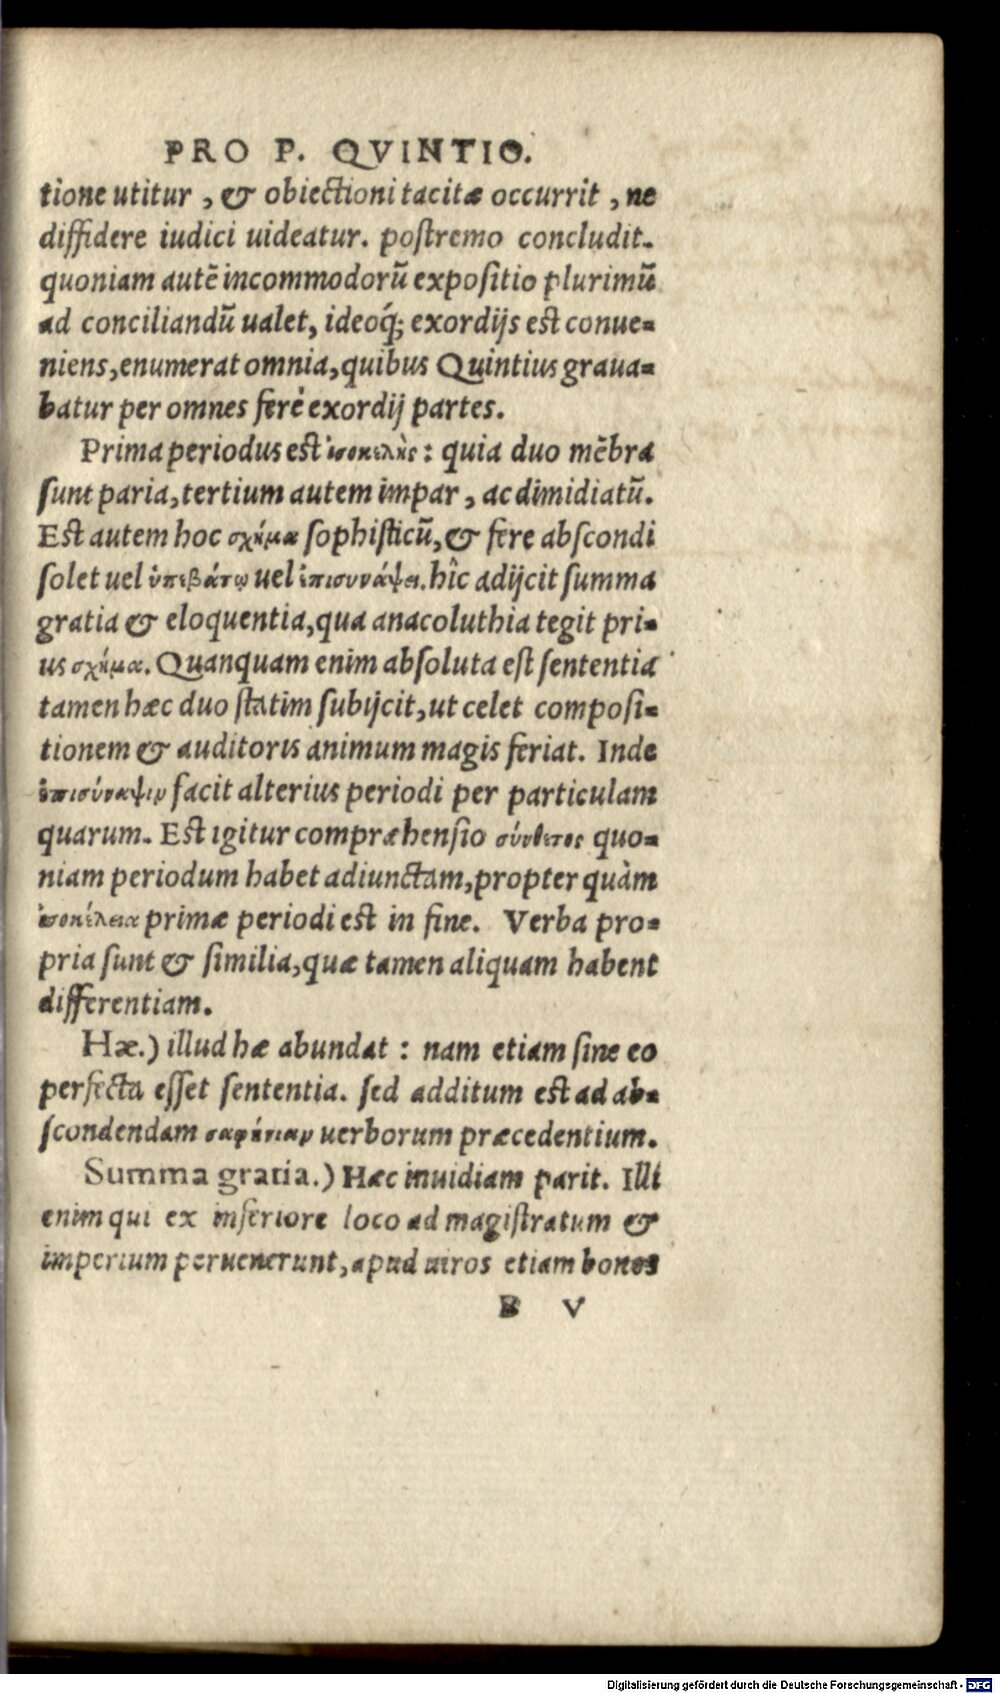 PRO P. QVINTIO.
tione utitur , & obiectioni tacitæ occurrit , ne
diffidere iudici uideatur. postremo concludit.
quoniam autē incommodorū expositio plurimū
ad conciliandū ualet, ideoq́; exordijs est conue=
niens,enumerat omnia,quibus Quintius graua=
batur per omnes ferè exordij partes.
Prima periodus est ἰσοκελὴς : quia duo mēbra
sunt paria,tertium autem impar , ac dimidiatū.
Est autem hoc σχῆμα sophisticū,& fere abscondi
solet uel ὑπερβάτῳ uel ἐπισυνάψει. hîc adijcit summa
gratia & eloquentia,qua anacoluthia tegit pri=
us σχῆμα. Quanquam enim absoluta est sententia
tamen hæc duo statim subijcit,ut celet composi=
tionem & auditoris animum magis feriat. Inde
ἐπισύναψιν facit alterius periodi per particulam
quarum. Est igitur compræhensio σύνθετος quo=
niam periodum habet adiunctam,propter quàm
ἰσοκέλεια primæ periodi est in fine. Verba pro=
pria sunt & similia,quæ tamen aliquam habent
differentiam.
Hæ.) illud hæ abundat : nam etiam sine eo
perfecta esset sententia. sed additum est ad ab=
scondendam σαφήνειαν uerborum præcedentium.
Summa gratia.) Hæc inuidiam parit. Illi
enim qui ex inferiore loco ad magistratum &
imperium peruenerunt,apud uiros etiam bonos
B V
Digitalisierung gefördert durch die Deutsche Forschungsgemeinschaft - DFG